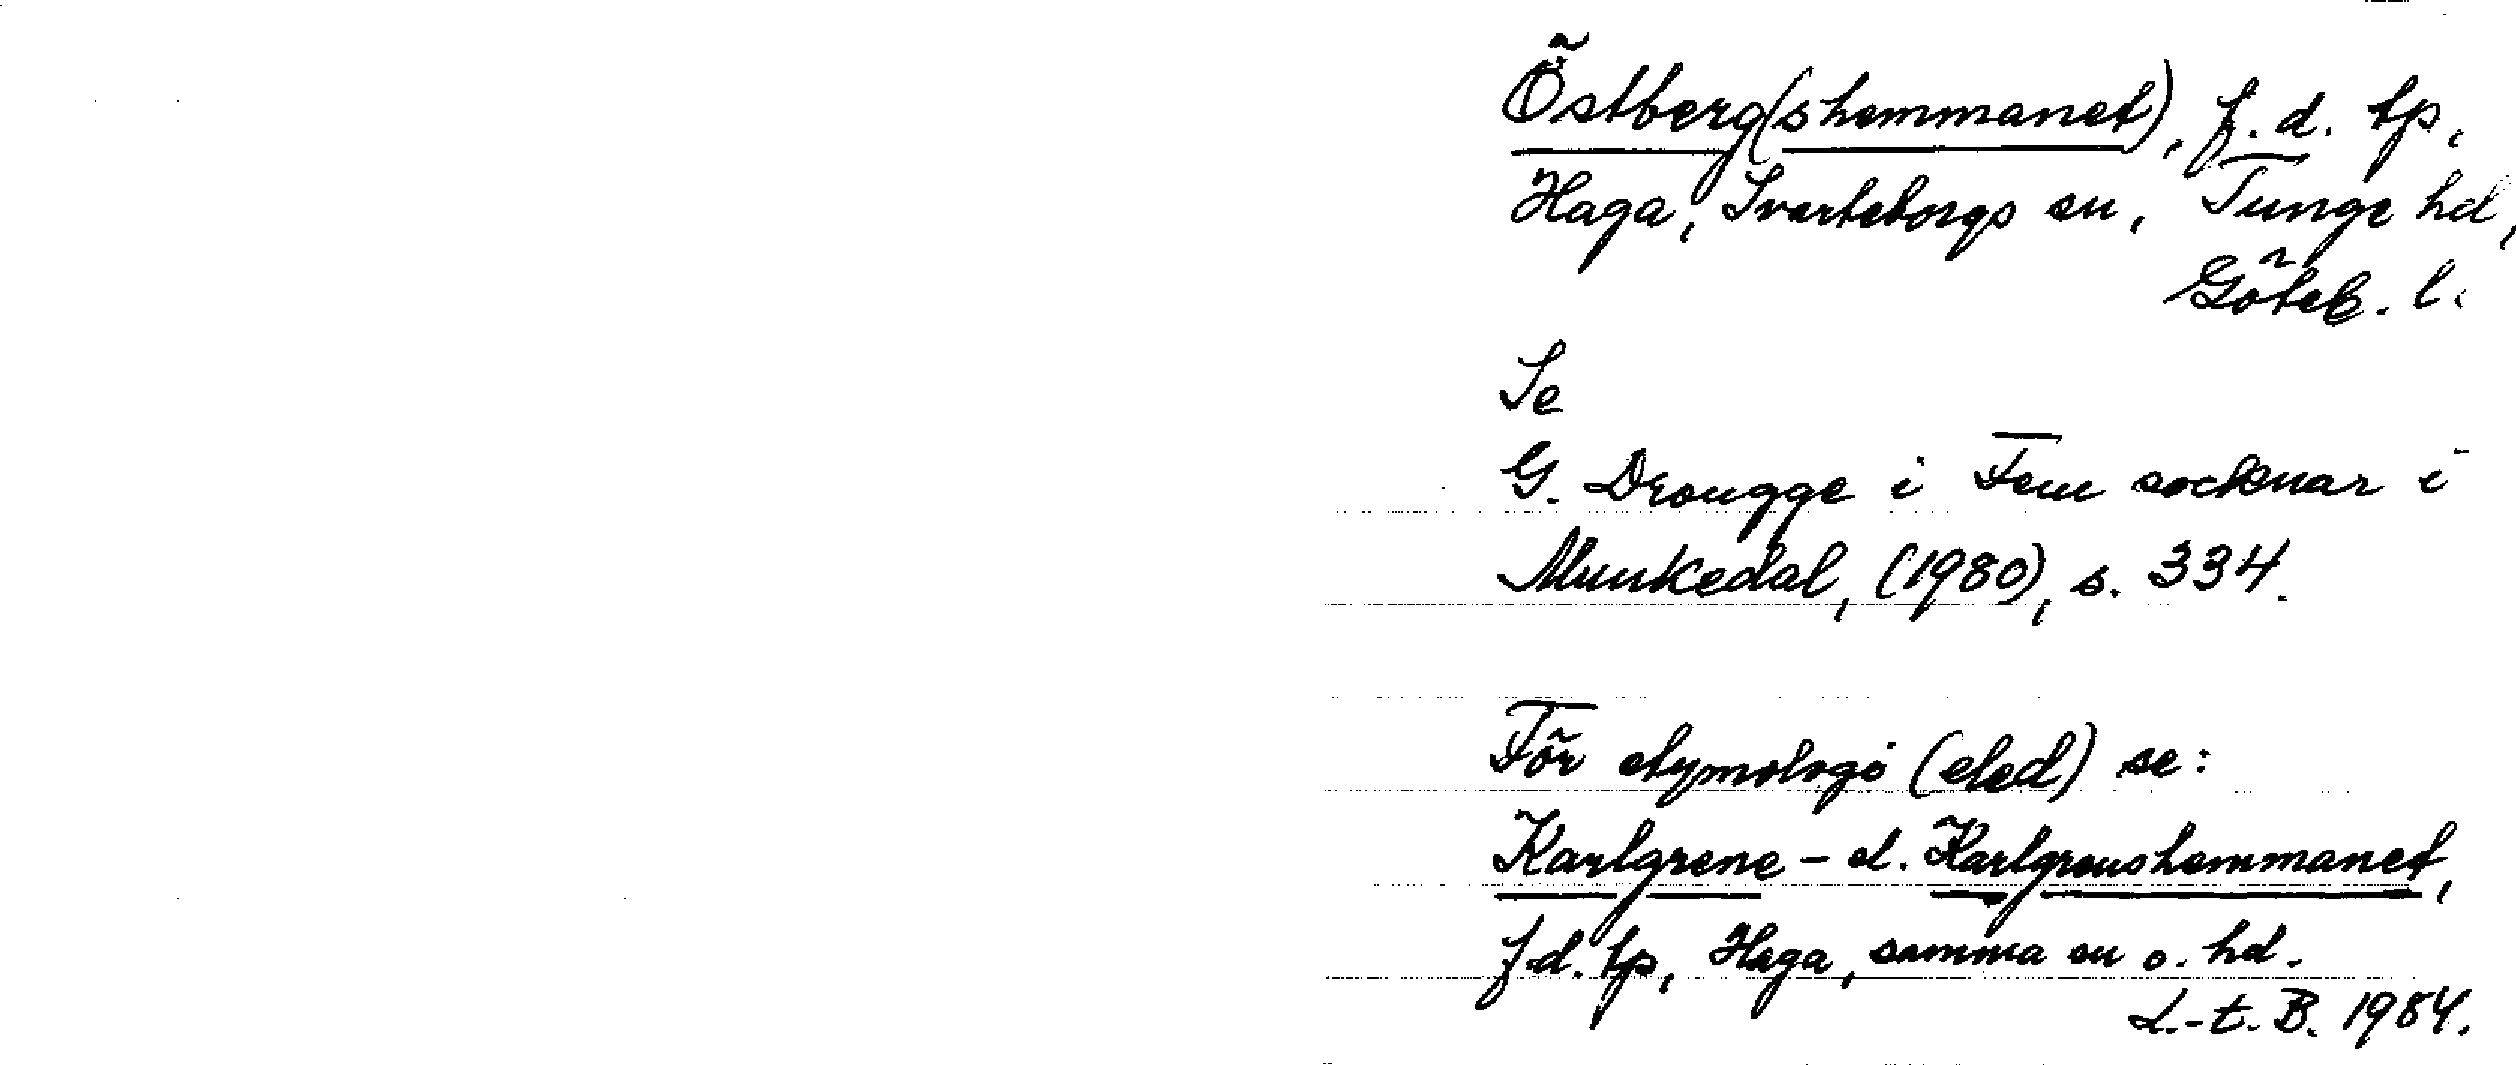 Östberg(shemmanet), f.d. tp,
Haga, Svarteborgs sn, Tunge hd,
Göteb. l.
Se
G. Drougge i Fem socknar i
Munkedal, (1980), s. 334.
För etymologi (eled) se:
Karlgrene- el. Karlgrenshemmanet,
f.d. tp, Haga, samma sn o. hd.
L.-t. B. 1984.